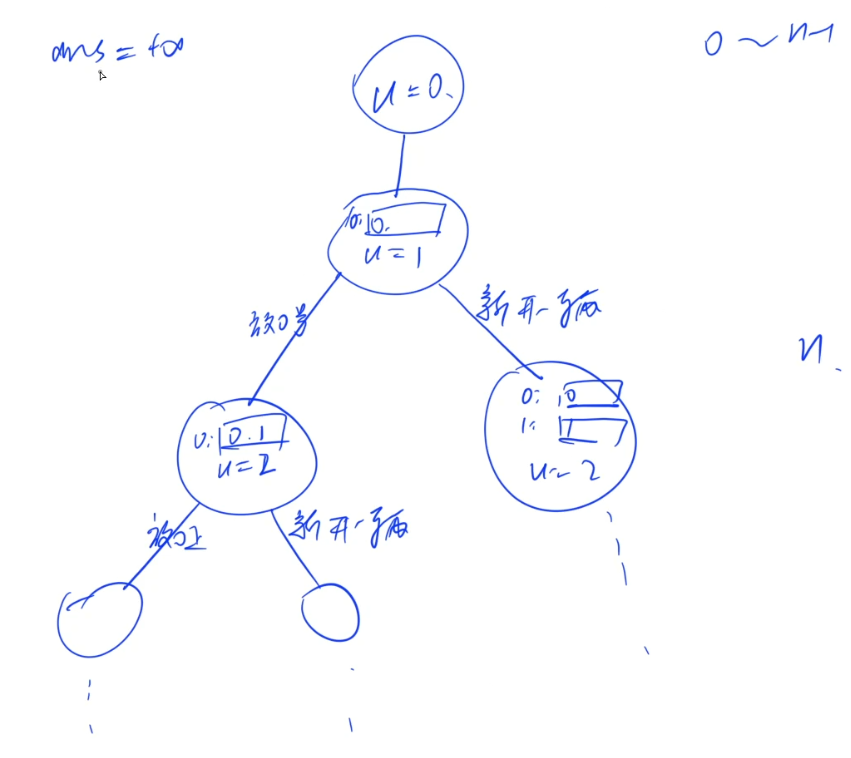 ans = +∞
0 ~ n-1
u = 0.
0: 0.
u = 1
放0号
新开一辆
n.
0: 0.1
u = 2
0: 0
1: 1
u = 2
放0上
新开一辆